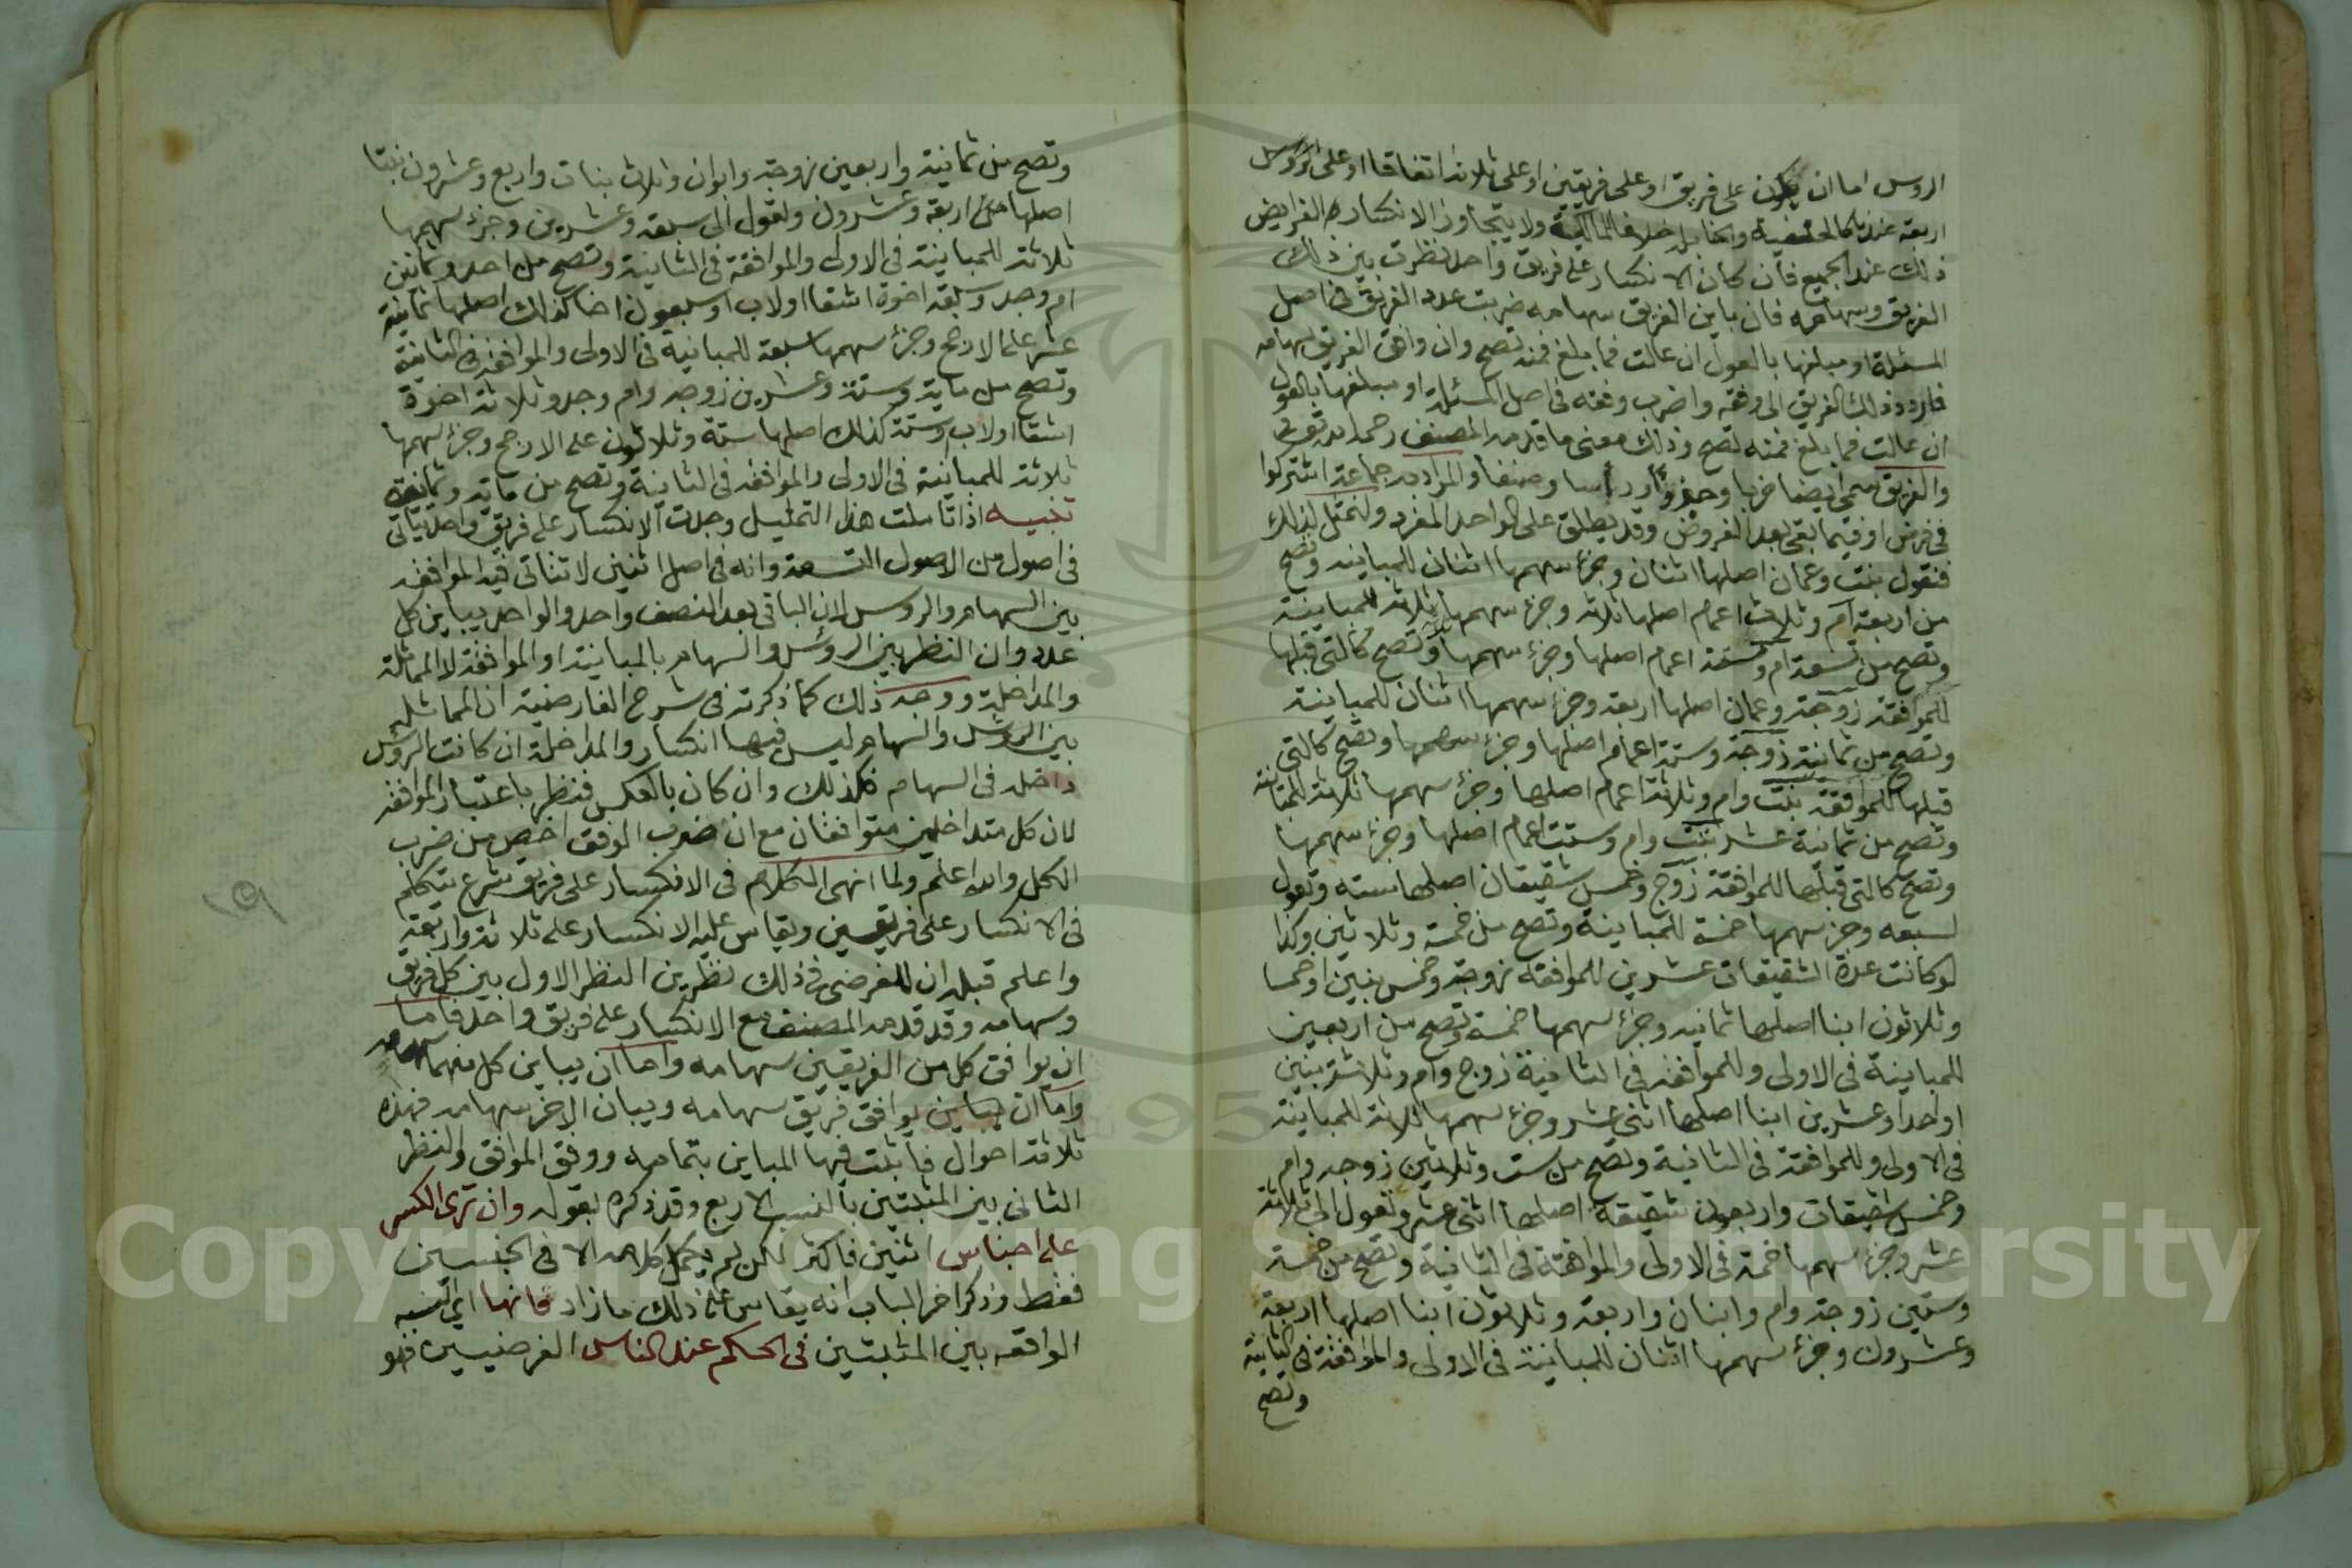 الروس اما ان يكون على فريق او على فريقين او على ثلاثة اتفاقا او على
اربعة عندنا كالحنفية والحنابلة خلافا للمالكية ولا يتجاوز الانكسار في الفرايض
ذلك عند الجميع فان كان الانكسار على فريق واحد نظرت بين ذلك
الفريق وسهامه فان باين الفريق سهامه ضربت عدد الفريق في اصل
المسئلة او مبلغها بالعول ان عالت فما بلغ فمنه تصح وان وافق الفريق سهامه
فاردد ذلك الفريق الى وفقه واضرب وفقه في اصل المسئلة او مبلغها بالعول
ان عالت فما بلغ فمنه تصح وذلك معنى ما قدمه المصنف رحمه الله
والفريق يسمى ايضا حزبا وصنفا والمراد به جماعة اشتركوا
في فرض او فيما بقى بعد الفروض وقد يطلق على الواحد المفرد ولنمثل لذلك
فنقول بنت وعمان اصلها اثنان وجزء سهمها اثنان للمباينه وتصح
من اربعة ام وثلاث اعمام اصلها ثلاثة وجزء سهمها ثلاثة للمباينة
وتصح من تسعة ام وستة اعمام اصلها وجزء سهمها وتصح كالتى قبلها
للموافقة زوجة وعمان اصلها اربعة وجزء سهمها اثنان للمباينة
وتصح من ثمانية زوجة وستة اعمام اصلها وجزء سهمها وتصح كالتى
قبلها للموافقة بنت وام وثلاثة اعمام اصلها وجزء سهمها ثلاثة للمباينة
وتصح من ثمانية عشر بنت وام وستت اعمام اصلها وجزء سهمها
وتصح كالتى قبلها للموافقة زوج وخمس شقيقان اصلها سته وتعول
لسبعه وجزء سهمها خمسة للمباينة وتصح من خمسة وثلاثين وكذا
لو كانت عدة الشقيقات عشرين للموافقه زوجة وخمس بنين او خمسا
وثلاثون ابنا اصلها ثمانيه وجزء سهمها خمسة وتصح من اربعين
للمباينة في الاولى وللموافقه في الثانية زوج وام وثلاثة بنين
او احدا وعشرين ابنا اصلها اثنى عشر وجزء سهمها ثلاثة للمباينة
في الاولى وللموافقة في الثانية وتصح من ست وثلاثين زوجه وام
وخمس شقيقات واربعون شقيقة اصلها اثنى عشر وتعول الى ثلاثة
عشر وجزء سهمها خمسة في الاولى والموافقة في الثانية وتصح من خمسة
وستين زوجة وام وابنان واربعة وثلاثون ابنا اصلها اربعة
وعشرون وجزء سهمها اثنان للمباينة في الاولى والموافقة في الثانية
وتصح
وتصح من ثمانية واربعين زوجة وابوان وثلاث بنات واربع وعشرون بنتا
اصلها من اربعة وعشرون وتعول الى سبعة وعشرين وجزء سهمها
ثلاثة للمباينة في الاولى والموافقة في الثانية وتصح من احد وثمانين
ام وجد وسبعة اخوة اشقا او لاب او سبعون اخا كذلك اصلها ثمانية
عشر على الارجح وجزء سهمها سبعة للمباينة في الاولى والموافقة في الثانية
وتصح من ماية وستة وعشرين زوجه وام وجد وثلاثة اخوة
اشقا او لاب وستة كذلك اصلها ستة وثلاثون على الارجح وجزء سهمها
ثلاثة للمباينة في الاولى والموافقه في الثانية وتصح من مايه وثمانية
تنبيه اذا تاملت هذا التمثيل وجدت الانكسار على فريق واحد ياتى
في اصول من الاصول التسعة وانه في اصل اثنين لا تتاتى فيه الموافقه
بين السهام والروس لان الباقى بعد النصف واحد والواحد يباين كل
عدد وان النظر بين الروس والسهام بالمباينة او الموافقة لا المماثلة
والمداخلة ووجه ذلك كما ذكرته في شرح الفارضية ان المماثلة
بين الروس والسهام ليس فيها انكسار والمداخلة ان كانت الروس
داخله في السهام فكذلك وان كان بالعكس فنظر باعتبار الموافقة
لان كل متداخلين متوافقان مع ان ضرب الوفق اخصر من ضرب
الكل والله اعلم ولما انهى الكلام في الانكسار على فريق شرع يتكلم
في الانكسار على فريقين ويقاس عليه الانكسار على ثلاثة واربعة
واعلم قبله ان للفرضى في ذلك نظرين النظر الاول بين كل فريق
وسهامه وقد قدمه المصنف مع الانكسار على فريق واحد فاما
ان يوافق كل من الفريقين سهامه واما ان يباين كل منهما سهامه
واما ان يباين يوافق فريق سهامه ويباين الاخر سهامه فهذه
ثلاثة احوال فاثبت فيها المباين بتمامه ووفق الموافق والنظر
الثانى بين المثبتين بالنسب الاربع وقد ذكره بقوله وان ترى الكسر
على اجناس اثنين فاكثر لكن لم يكمل كلامه الا في الجنسين
فقط وذكر اخر الباب انه يقاس على ذلك ما زاد فانها اى النسبه
الواقعه بين المثبتين في الحكم عند الناس الفرضيين فهو
Copyright © King Saud University